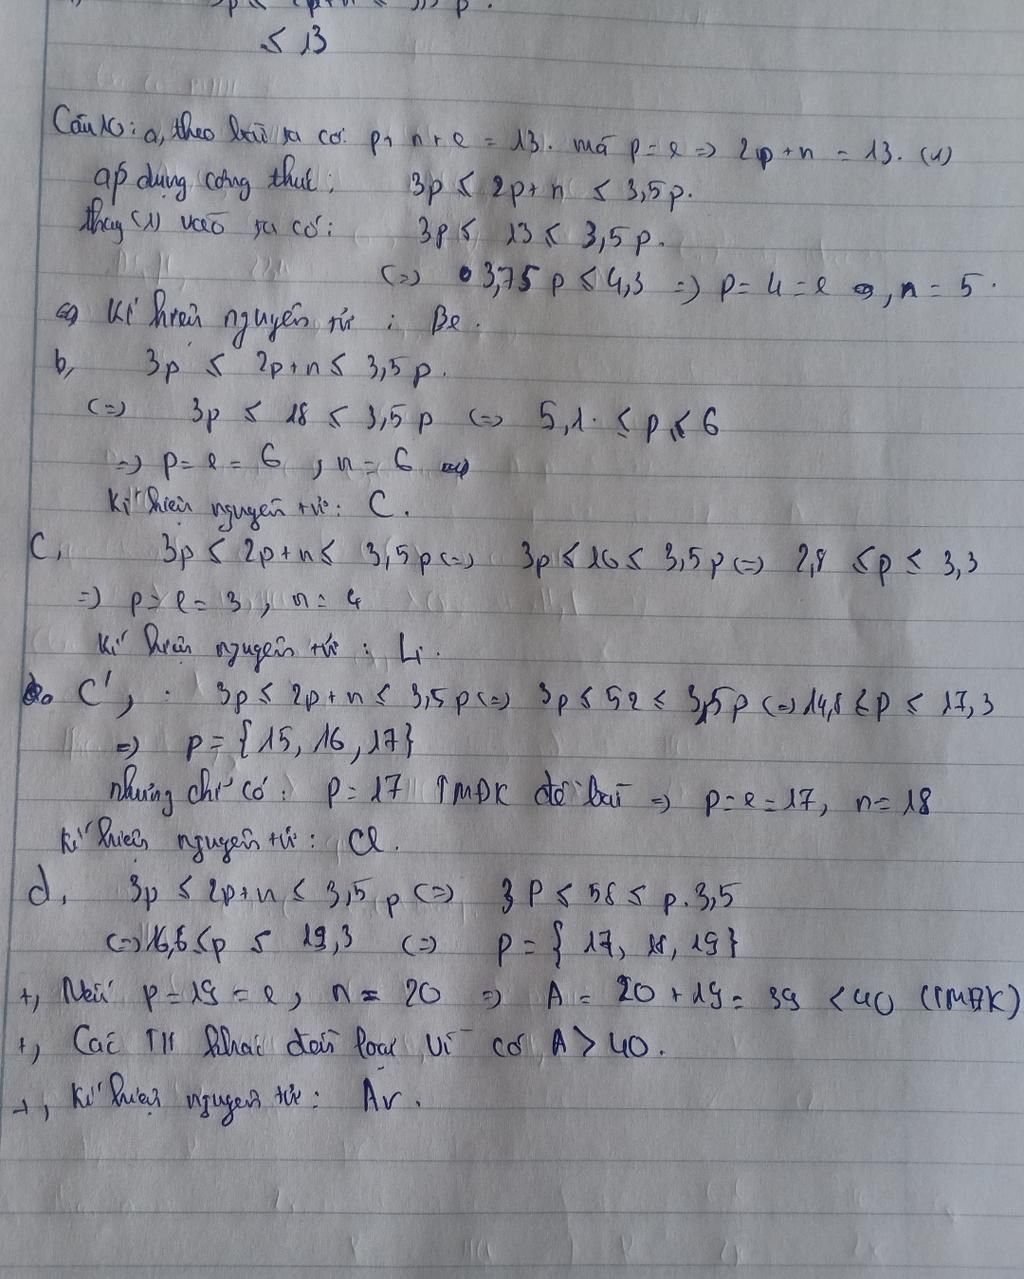 ≤ 13
Câu 10: a, theo bài ra có: p + n + e = 13. mà p = e => 2p + n = 13. (1)
áp dụng công thức: 3p ≤ 2p + n ≤ 3,5p.
thay (1) vào ta có: 3p ≤ 13 ≤ 3,5p.
<=> 3,75 p ≤ 4,3 => p = 4 = e, n = 5.
Kí hiệu nguyên tử: Be.
b, 3p ≤ 2p + n ≤ 3,5p.
<=> 3p ≤ 18 ≤ 3,5p <=> 5,1. ≤ p ≤ 6
=> p = e = 6, n = 6
Kí hiệu nguyên tử: C.
C, 3p ≤ 2p + n ≤ 3,5p <=> 3p ≤ 10 ≤ 3,5p <=> 2,8 ≤ p ≤ 3,3
=> p = e = 3, n = 4
Kí hiệu nguyên tử: Li.
C', : 3p ≤ 2p + n ≤ 3,5p <=> 3p ≤ 52 ≤ 3,5p <=> 14,8 ≤ p ≤ 17,3
=> p = {15, 16, 17}
nhưng chỉ có: p = 17 TMĐK đề bài => p = e = 17, n = 18
Kí hiệu nguyên tử: Cl.
d, 3p ≤ 2p + n ≤ 3,5p <=> 3p ≤ 58 ≤ p.3,5
<=> 16,6 ≤ p ≤ 19,3 <=> p = {17, 18, 19}
+, Nếu p = 19 = e, n = 20 => A = 20 + 19 = 39 < 40 (TMĐK)
+, Các TH khác đều loại vì có A > 40.
+, Kí hiệu nguyên tử: Ar.